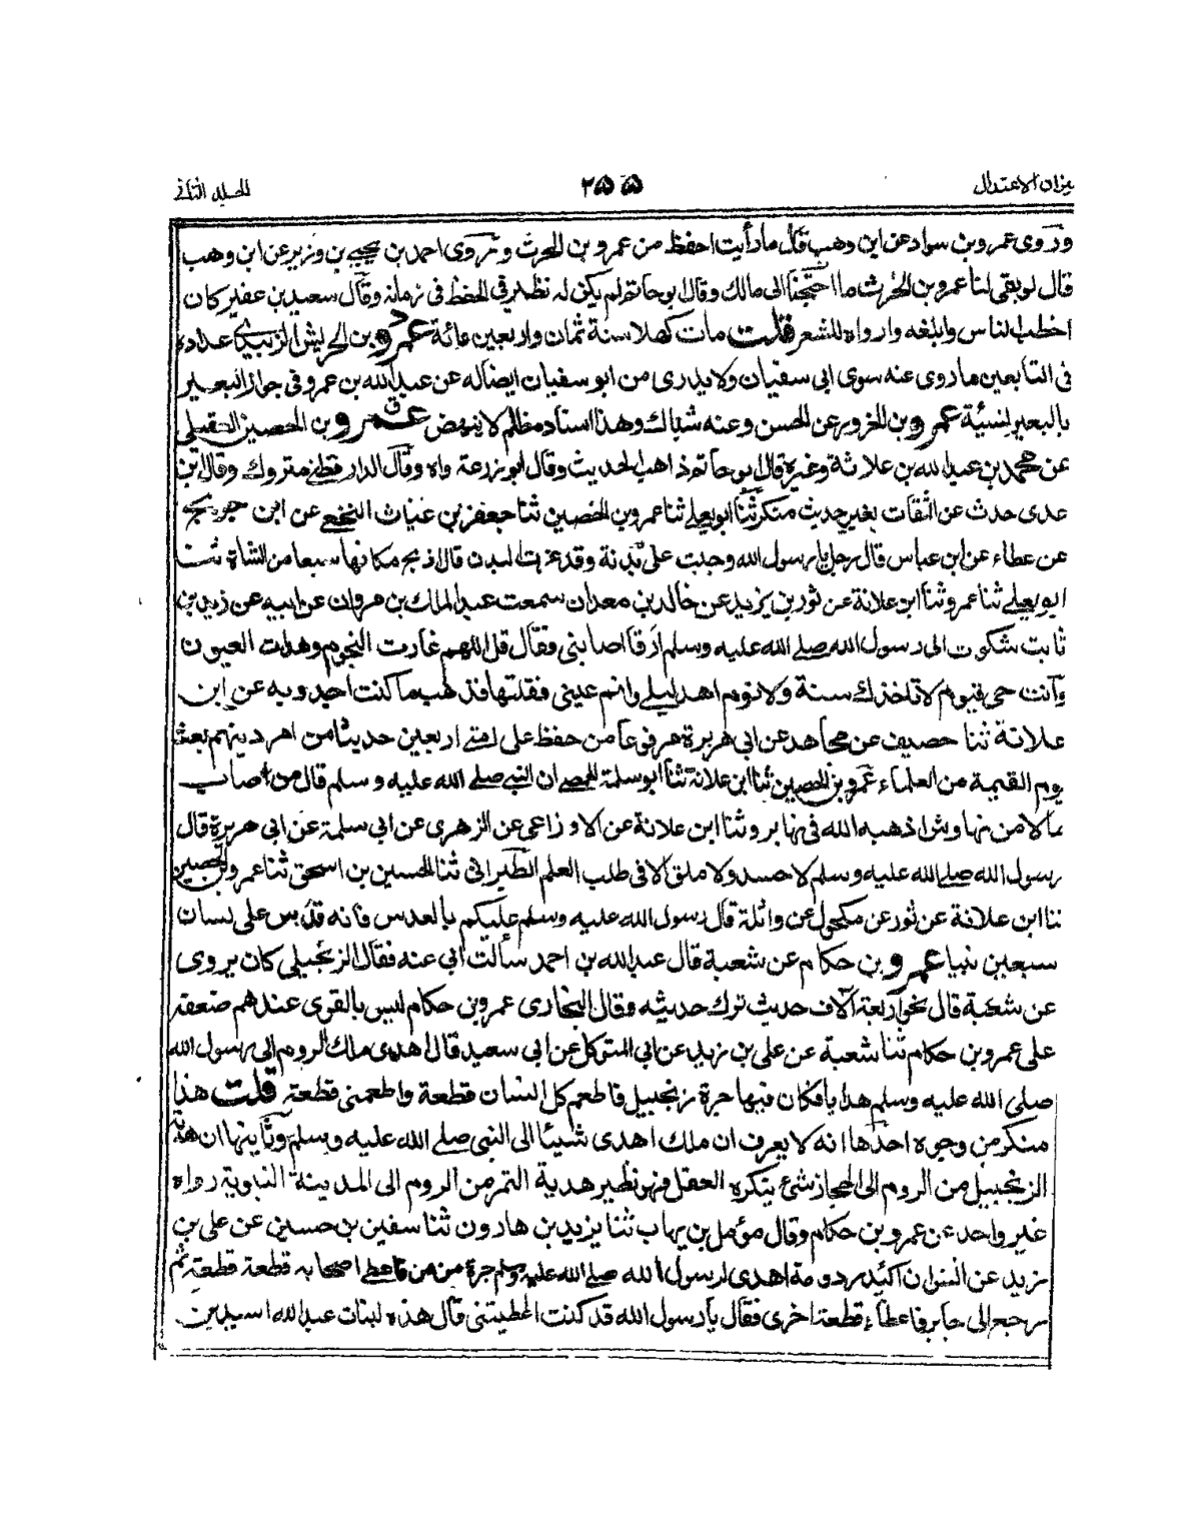 ميزان الاعتدال ٢٥٥ المجلد الثاني
وروى عمرو بن سواد عن ابن وهب قال ما رأيت احفظ من عمرو بن الحرث وروى احمد بن يحيى بن وزير عن ابن وهب
قال لو بقى لنا عمرو بن الحرث ما احتجنا الى مالك وقال ابو حاتم لم يكن له نظير فى الحفظ فى زمانه وقال سعيد بن عفير كان
اخطب الناس وابلغه وارواه للشعر قلت مات كهلا سنة ثمان واربعين مائة عمرو بن الحريش الزبيدى عداده
فى التابعين ما روى عنه سوى ابى سفيان ولا يدرى من ابو سفيان ايضاله عن عبدالله بن عمرو فى جواز البعير
بالبعير نسئية عمرو بن الخزور عن الحسن وعنه شباك وهذا اسناد مظلم لا ينهض عمرو بن الحصين العقيلى
عن محمد بن عبدالله بن علاثة وغيره قال ابو حاتم ذاهب الحديث وقال ابو زرعة واه وقال الدارقطنى متروك وقال ابن
عدى حدث عن الثقات بغير حديث منكر ثنا ابو يعلى ثنا عمرو بن الحصين ثنا حفص بن غياث النخعى عن ابن جريج
عن عطاء عن ابن عباس قال رجل يا رسول الله وجبت على بدنة وقد عزت البدن قال اذبح مكانها سبعا من الشاة ثنا
ابو يعلى ثنا عمرو ثنا ابن علانة عن ثور بن يزيد عن خالد بن معدان سمعت عبد الملك بن مروان عن ابيه عن زيد بن
ثابت شكوت الى رسول الله صلى الله عليه وسلم ارقا اصابنى فقال قل اللهم غارت النجوم وهدات العيون
وانت حى قيوم لا تاخذك سنة ولا نوم اهد ليلى وانم عينى فقلتها فذهب ما كنت اجد وبه عن ابن
علانة ثنا خصيف عن مجاهد عن ابى هريرة مرفوعا من حفظ على امتى اربعين حديثا من امر دينهم بعث
يوم القيمة من العلماء عمرو بن الحصين ثنا ابن علانة ثنا ابو سلمة الحمصى ان النبى صلى الله عليه وسلم قال من اصاب
مالا من نهاوش اذهبه الله فى نهابر وثنا ابن علانة عن الاوزاعى عن الزهرى عن ابى سلمة عن ابى هريرة قال
رسول الله صلى الله عليه وسلم لا حسد ولا ملق الا فى طلب العلم الطبرانى ثنا الحسين بن اسحق ثنا عمرو بن الحصين
ثنا ابن علانة عن ثور عن مكحول عن واثلة قال رسول الله عليه وسلم عليكم بالعدس فانه قدس على لسان
سبعين نبيا عمرو بن حكام عن شعبة قال عبدالله بن احمد سألت ابى عنه فقال الزنجبيلى كان يروى
عن شعبة قال نحو اربعة آلاف حديث ترك حديثه وقال البخارى عمرو بن حكام ليس بالقوى عندهم ضعفه
على عمرو بن حكام ثنا شعبة عن على بن زيد عن ابى المتوكل عن ابى سعيد قال اهدى ملك الروم الى رسول الله
صلى الله عليه وسلم هدايا فكان فيها جرة زنجبيل فاطعم كل انسان قطعة واطعمنى قطعة قلت هذا
منكر من وجوه احدها انه لا يعرف ان ملك اهدى شيئا الى النبى صلى الله عليه وسلم وثانيها ان هدية
الزنجبيل من الروم الى الحجاز شئ ينكره العقل فهو نظير هدية التمر من الروم الى المدينة النبوية رواه
غير واحد عن عمرو بن حكام وقال مؤمل بن يهاب ثنا يزيد بن هارون ثنا سفين بن حسين عن على بن
زيد عن انس ان اكيدر دومة اهدى لرسول الله صلى الله عليه وسلم جرة من من فاعطى اصحابه قطعة قطعة ثم
رجع الى جابر فاعطاء قطعة اخرى فقال يا رسول الله قد كنت اعطيتنى قال هذه لبنات عبدالله اسيد بن